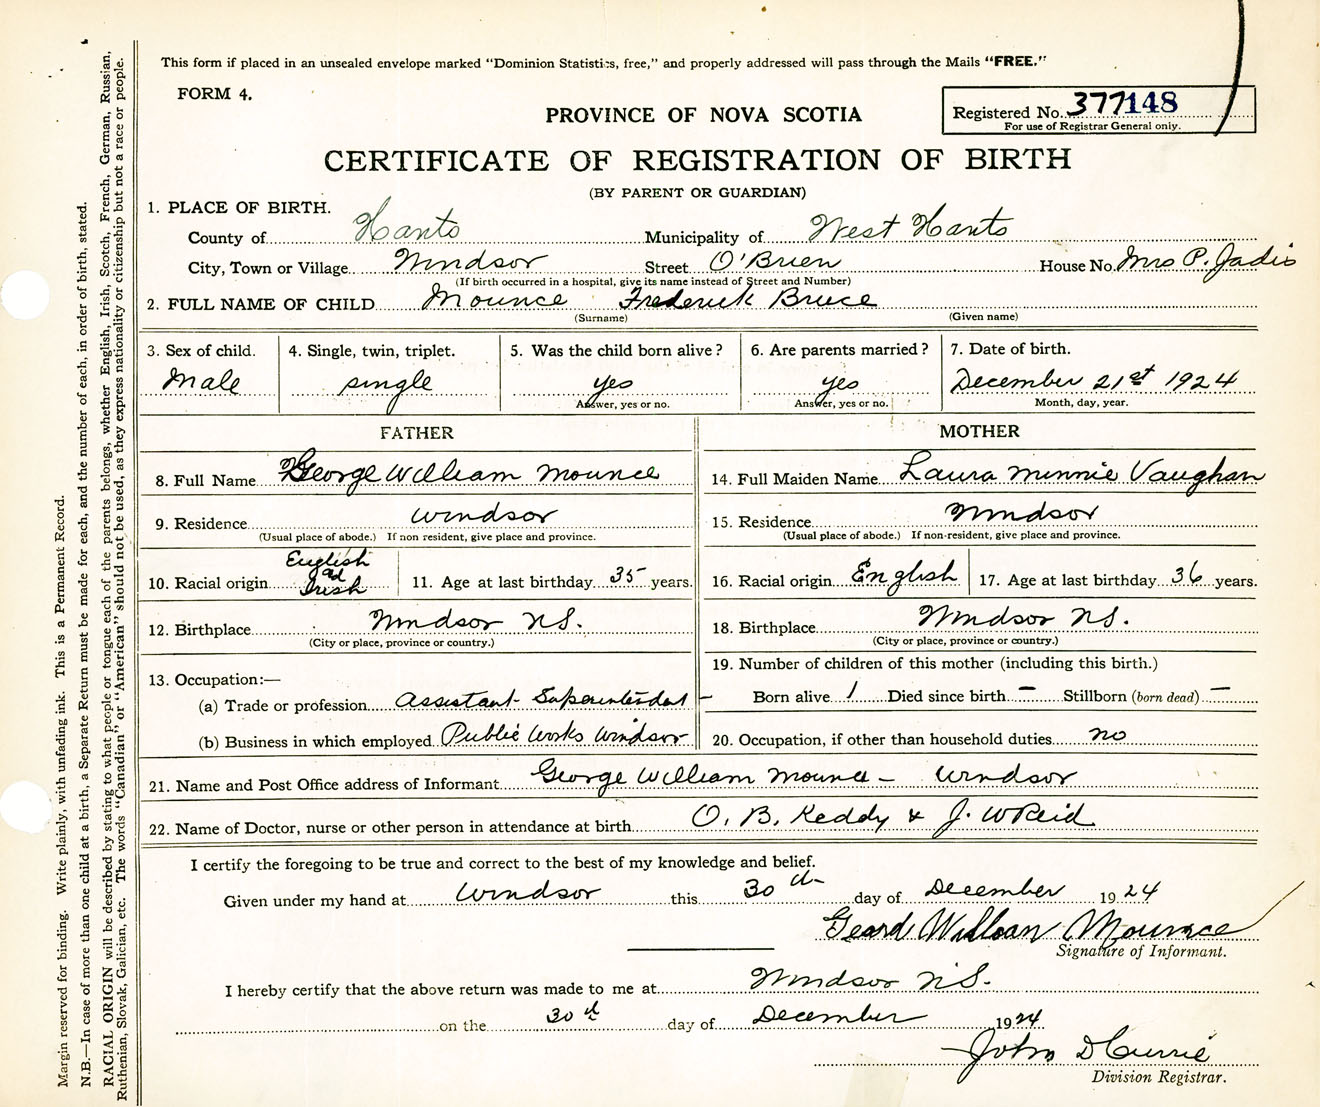 This form if placed in an unsealed envelope marked "Dominion Statistics, free," and properly addressed will pass through the Mails "FREE."
FORM 4.
PROVINCE OF NOVA SCOTIA
Registered No. 377148
For use of Registrar General only.
CERTIFICATE OF REGISTRATION OF BIRTH
(BY PARENT OR GUARDIAN)
1. PLACE OF BIRTH.
County of Hants Municipality of West Hants
City, Town or Village Windsor Street O'Brien House No. Mrs P. Jadis
(If birth occurred in a hospital, give its name instead of Street and Number)
2. FULL NAME OF CHILD Mounce Frederick Bruce
(Surname) (Given name)
3. Sex of child. 4. Single, twin, triplet. 5. Was the child born alive? 6. Are parents married? 7. Date of birth.
Male single yes yes December 21st 1924
Answer, yes or no. Answer, yes or no. Month, day, year.
FATHER MOTHER
8. Full Name George William Mounce 14. Full Maiden Name Laura Minnie Vaughan
9. Residence Windsor 15. Residence Windsor
(Usual place of abode.) If non resident, give place and province. (Usual place of abode.) If non-resident, give place and province.
10. Racial origin English ad Irish 11. Age at last birthday 35 years. 16. Racial origin English 17. Age at last birthday 36 years.
12. Birthplace Windsor NS. 18. Birthplace Windsor NS.
(City or place, province or country.) (City or place, province or country.)
13. Occupation:— 19. Number of children of this mother (including this birth.)
(a) Trade or profession Assistant Superintendent - Born alive 1 Died since birth – Stillborn (born dead) –
(b) Business in which employed Public Works Windsor 20. Occupation, if other than household duties no
21. Name and Post Office address of Informant George William Mounce – Windsor
22. Name of Doctor, nurse or other person in attendance at birth O. B. Keddy & J. W Reid
I certify the foregoing to be true and correct to the best of my knowledge and belief.
Given under my hand at Windsor this 30th day of December 1924
William Mounce
Signature of Informant.
I hereby certify that the above return was made to me at Windsor N.S.
on the 30th day of December 1924
John D Currie
Division Registrar.
Margin reserved for binding. Write plainly, with unfading ink. This is a Permanent Record.
N.B.—In case of more than one child at a birth, a Separate Return must be made for each, and the number of each, in order of birth, stated.
RACIAL ORIGIN will be described by stating to what people or tongue each of the parents belongs, whether English, Irish, Scotch, French, German, Russian,
Ruthenian, Slovak, Galician, etc. The words "Canadian" or "American" should not be used, as they express nationality or citizenship but not a race or people.